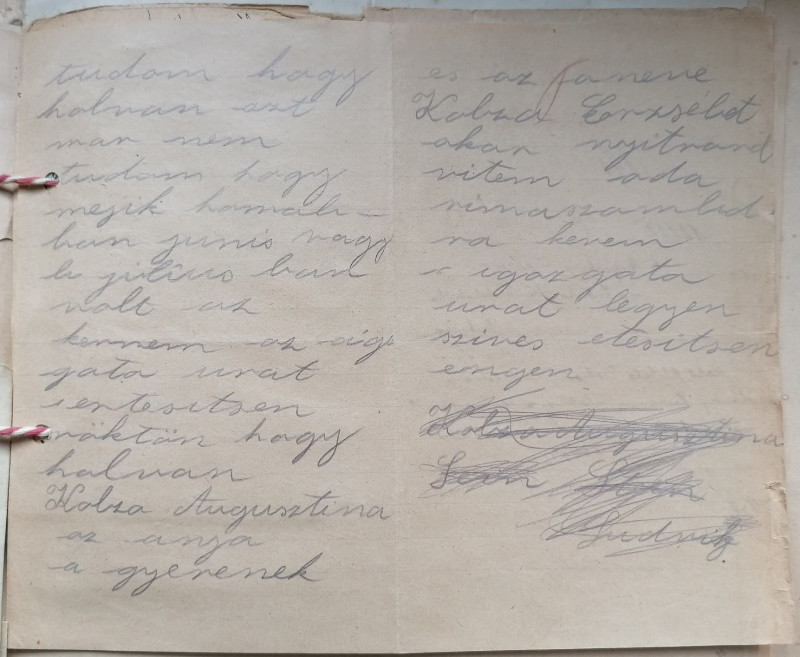 tudom hogy
holvan azt
mar nem
tudom hogy
mejik homab-
ban junis vagy
b julius ban
volt az
kernem az aig
gata urat
ertesitsen
röktön hogy
holvan
Kobza Augusztina
az anja
a gyerenek
es az fa neve
Kobza Erzsébet
akar nyitrard
vitem oda
rimaszambad
ra kerem
igazgata
urat legyen
szives etesitsen
engen
Kobza Augusztina
Ludvig